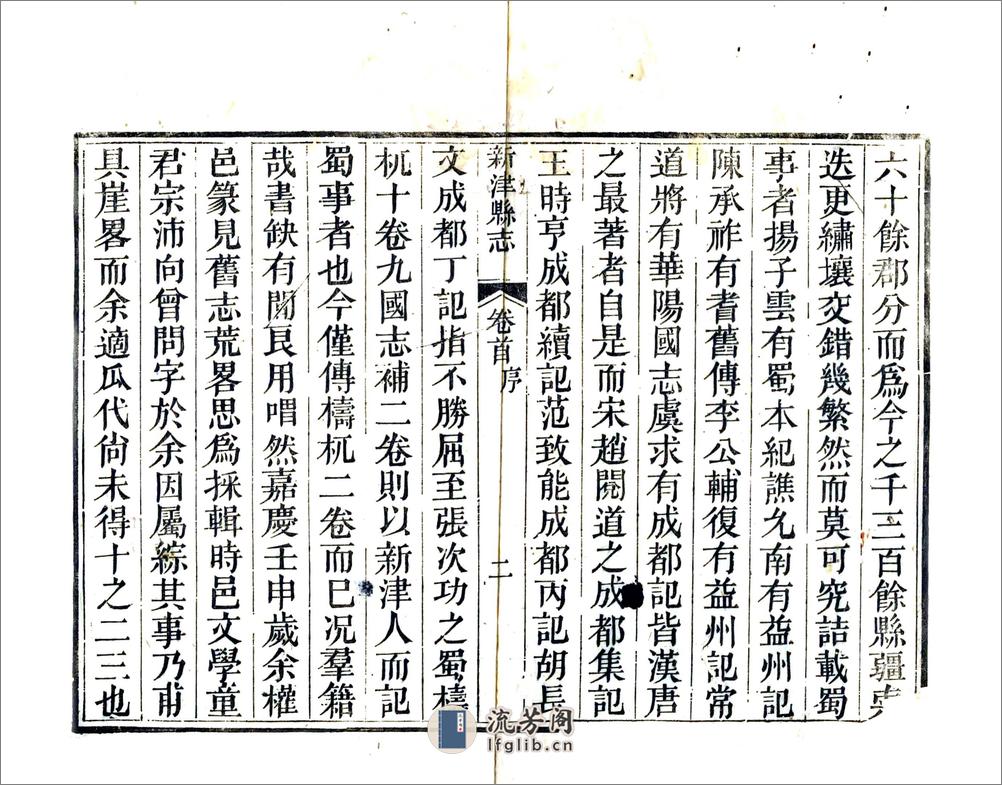 六十餘郡分而爲今之千三百餘縣疆
迭更繡壤交錯幾繁然而莫可究詰載蜀
事者揚子雲有蜀本紀譙允南有益州記
陳承祚有耆舊傳李公輔復有益州記常
道將有華陽國志虞求有成都記皆漢唐
之最著者自是而宋趙閱道之成都集記
王時亨成都續記范致能成都丙記胡長
新津縣志 卷首 序 二
文成都丁記指不勝屈至張次功之蜀檮
杌十卷九國志補二卷則以新津人而記
蜀事者也今僅傳檮杌二卷而已况羣籍
哉書缺有閒艮用喟然嘉慶壬申歲余權
邑篆見舊志荒畧思爲採輯時邑文學童
君宗沛向曾問字於余因屬綜其事乃甫
具崖畧而余適瓜代尙未得十之二三也
流芳阁
lfglib.cn